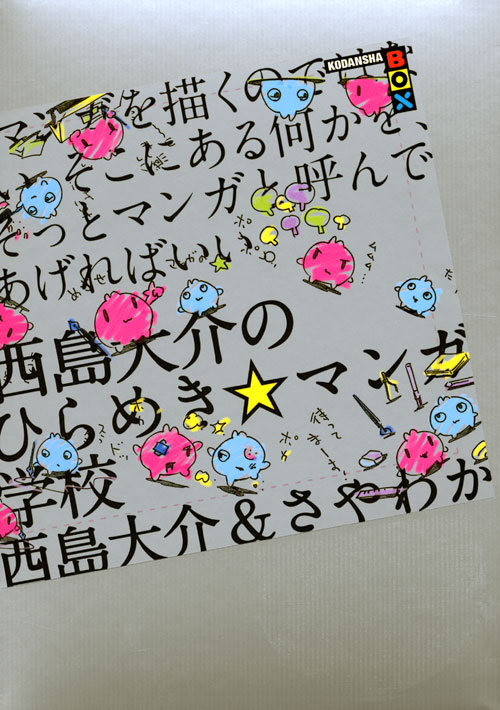 KODANSHA
BOX
マンガを描くのではな
く、そこにある何かを、
そっとマンガと呼んで
あげればいい。
西島大介の
ひらめき★マンガ
学校
西島大介&さやわか
待ってまーす。